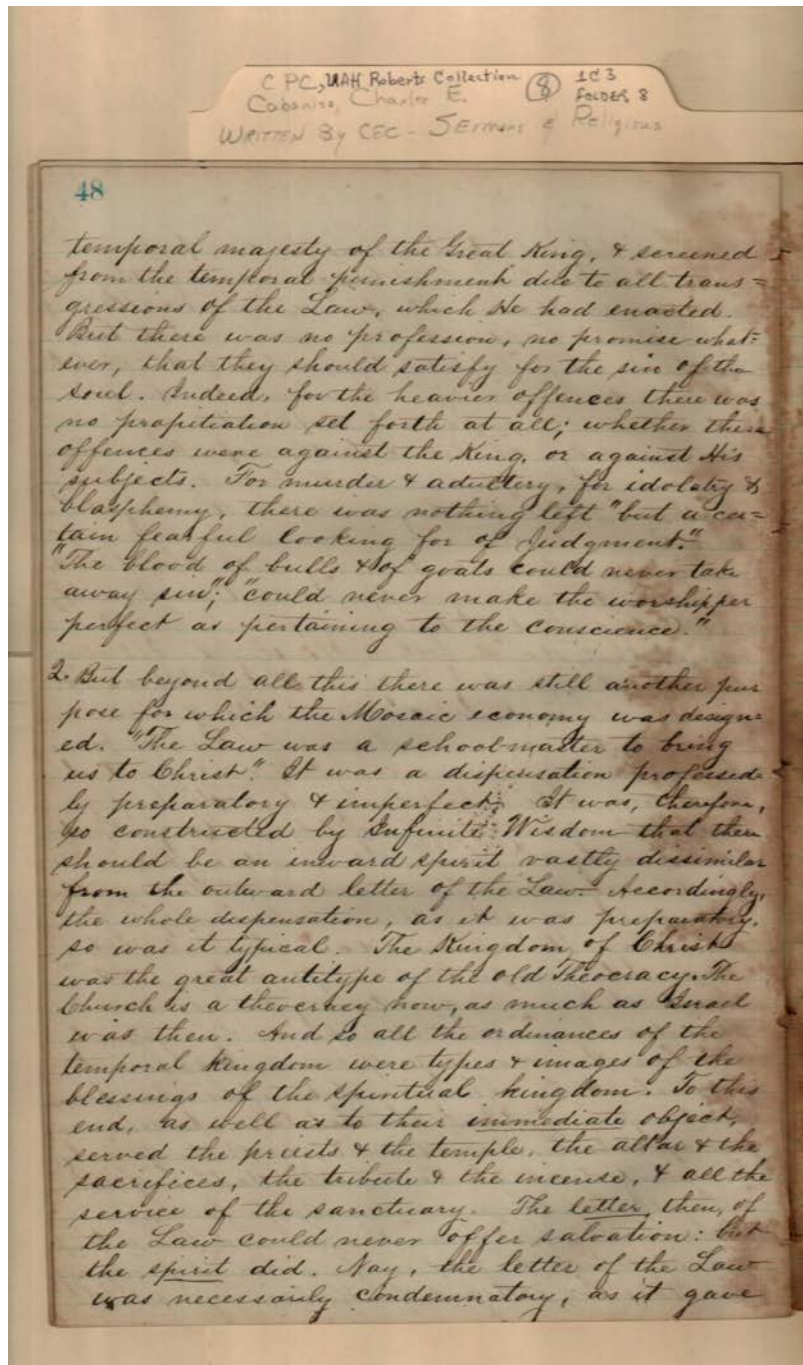 C PC, UAH Roberts Collection (8) 1C3
Cabaniss, Charles E. FOLDER 8
WRITTEN By CEC - Sermons & Religious
48
temporal majesty of the Great King, & screened
from the temporal punishment due to all trans=
gressions of the Law, which He had enacted.
But there was no profession, no promise what=
ever, that they should satisfy for the sin of the
soul. Indeed, for the heavier offences there was
no propitiation set forth at all; whether these
offences were against the King, or against His
subjects. For murder & adultery, for idolatry &
blasphemy, there was nothing left "but a cer=
tain fearful looking for of Judgment."
"The blood of bulls & of goats could never take
away sin"; "could never make the worshipper
perfect as pertaining to the conscience."
2. But beyond all this there was still another pur
pose for which the Mosaic economy was design=
ed. "The Law was a schoolmaster to bring
us to Christ." It was a dispensation professed=
ly preparatory & imperfect. It was, therefore,
so constructed by Infinite Wisdom that there
should be an inward spirit vastly dissimilar
from the outward letter of the Law. Accordingly,
the whole dispensation, as it was preparatory,
so was it typical. The Kingdom of Christ
was the great antitype of the old Theocracy. The
Church is a theocracy now, as much as Israel
was then. And so all the ordinances of the
temporal kingdom were types & images of the
blessings of the spiritual kingdom. To this
end, as well as to their immediate object,
served the priests & the temple, the altar & the
sacrifices, the tribute & the incense, & all the
service of the sanctuary. The letter, then, of
the Law could never offer salvation: but
the spirit did. Nay, the letter of the Law
was necessarily condemnatory, as it gave